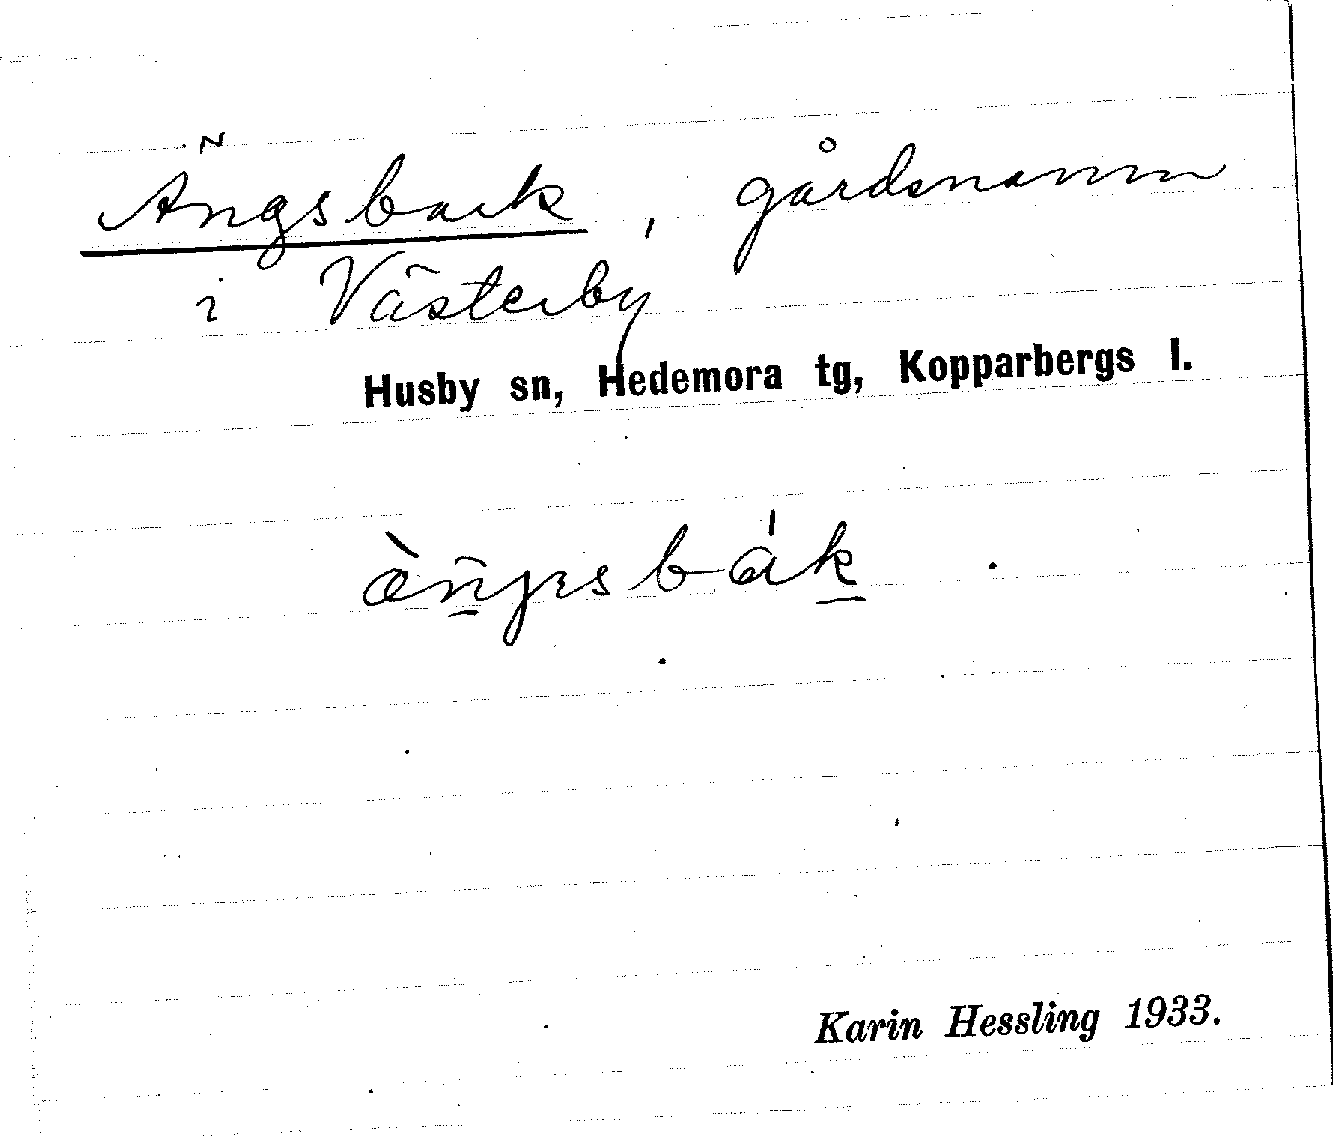 Ängsback, gårdsnamn
i Västerby
Husby sn, Hedemora tg, Kopparbergs l.
Karin Hessling 1933.